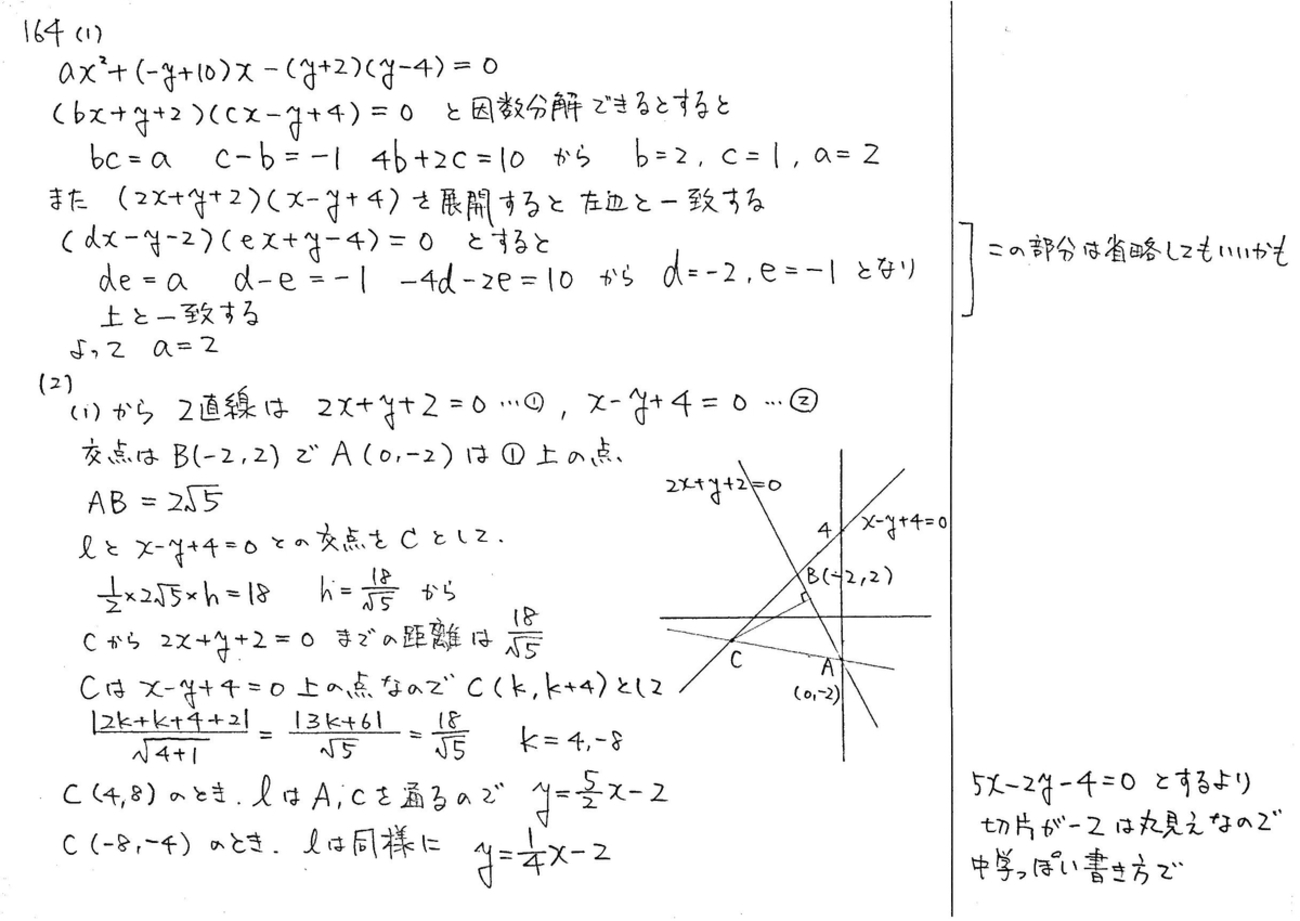 164 (1)
ax²+(-y+10)x-(y+2)(y-4)=0
(bx+y+2)(cx-y+4)=0 と因数分解できるとすると
bc=a c-b=-1 4b+2c=10 から b=2, c=1, a=2
また (2x+y+2)(x-y+4)を展開すると左辺と一致する
(dx-y-2)(ex+y-4)=0 とすると
de=a d-e=-1 -4d-2e=10 から d=-2, e=-1 となり
上と一致する
よって a=2
この部分は省略してもいいかも
(2)
(1)から 2直線は 2x+y+2=0 …①, x-y+4=0 …②
交点は B(-2,2) で A(0,-2)は①上の点、
AB=2√5
lと x-y+4=0 との交点をCとして、
1/2×2√5×h=18 h=18/√5 から
Cから 2x+y+2=0 までの距離は 18/√5
Cは x-y+4=0 上の点なので C(k, k+4)として
|2k+k+4+2|/√4+1 = |3k+6|/√5 = 18/√5 k=4,-8
C(4,8)のとき、lはA,Cを通るので y=5/2x-2
C(-8,-4)のとき、lは同様に y=1/4x-2
2x+y+2=0
4
x-y+4=0
B(-2,2)
C
A
(0,-2)
5x-2y-4=0 とするより
切片が-2は丸見えなので
中学っぽい書き方で